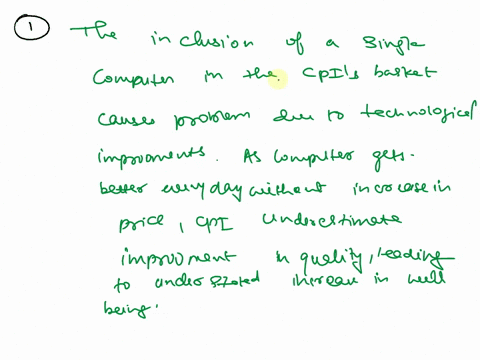 ① The inclusion of a single
Computer in the CPI's basket
causes problem due to technological
improments. As computer gets
better everyday without increase in
price, CPI underestimate
improvment in quality, leading
to understated increase in well
being.